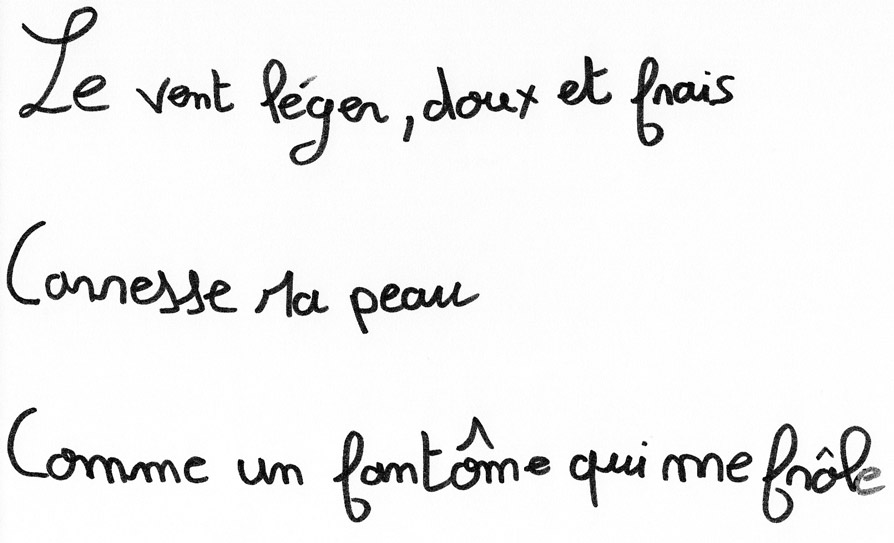 Le vent léger, doux et frais
Carresse ma peau
Comme un fantôme qui me frôle